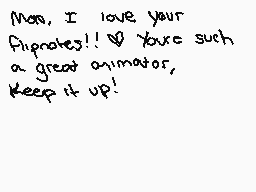 Man, I love your
flipnotes!! ♡ Youre such
a great animator,
Keep it up!